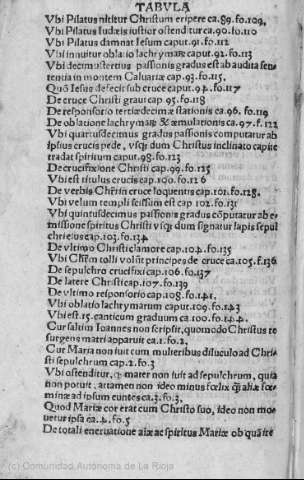 TABVLA
Vbi Pilatus nititur Christum eripere ca.89.fo.109.
Vbi Pilatus Iudeis iustior ostenditur ca.90.fo.110
Vbi Pilatus damnat Iesum caput.91.fo.112
Vbi innuitur oblatio lachrymaru caput.92.fo.113
Vbi decimustertius passionis gradus est ab audita sen-
tentia in montem Caluariæ cap.93.fo.115.
Quo Iesus defecit sub cruce caput.94.fo.117
De cruce Christi graui cap.95.fo.118
De responsorio tertiædecimæ stationis ca.96. fo.119
De oblatione lachrymarum ca.97.f.122
Vbi quartusdecimus gradus passionis computatur ab
ipsius crucis pede, vsq; dum Christus inclinato capite
tradat spiritum caput.98.fo.123
De crucifixione Christi cap.99.fo.125
Vbi est titulus crucis cap.100.fo.126
De verbis Chri in cruce loquentis cap.101.fo.128.
Vbi velum templi scissum est cap.102.fo.131
Vbi quintusdecimus passionis gradus cõputatur ab e-
missione spiritus Christi vsq; dum signatur lapis sepul
chri eius cap.103.fo.134
De vltimo Christi clamore cap.104.fo.135
Vbi tolli volũt principes de cruce ca.105.f.136
De sepulchro crucifixi cap.106.fo.137
De latere Christi cap.107.fo.139
De vltimo responsorio cap.108.fo.141.
Vbi oblatio lachrymarum caput.109.fo.143
Vbi est.15.canticum graduum ca.100.fo.144.
Cur saltim Ioannes non scripsit, quomodo Christus re
surgens matri apparuit ca.1.fo.2.
Cur Maria non iuit cum mulieribus diluculo ad Chri-
sti sepulchrum cap.2.fo.3
Vbi ostenditur, q̃ mater non iuit ad sepulchrum, quia
non potuit, attamen non ideo minus fœlix q̃ aliæ fœ-
minæ ad ipsum euntes ca.3.fo.3.
Quod Mariæ cor erat cum Christo suo, ideo non mo-
uetur ipsa ca.4.fo.5
De totali eneruatione aīæ ac spiritus Mariæ ob
(c) Comunidad Autónoma de La Rioja